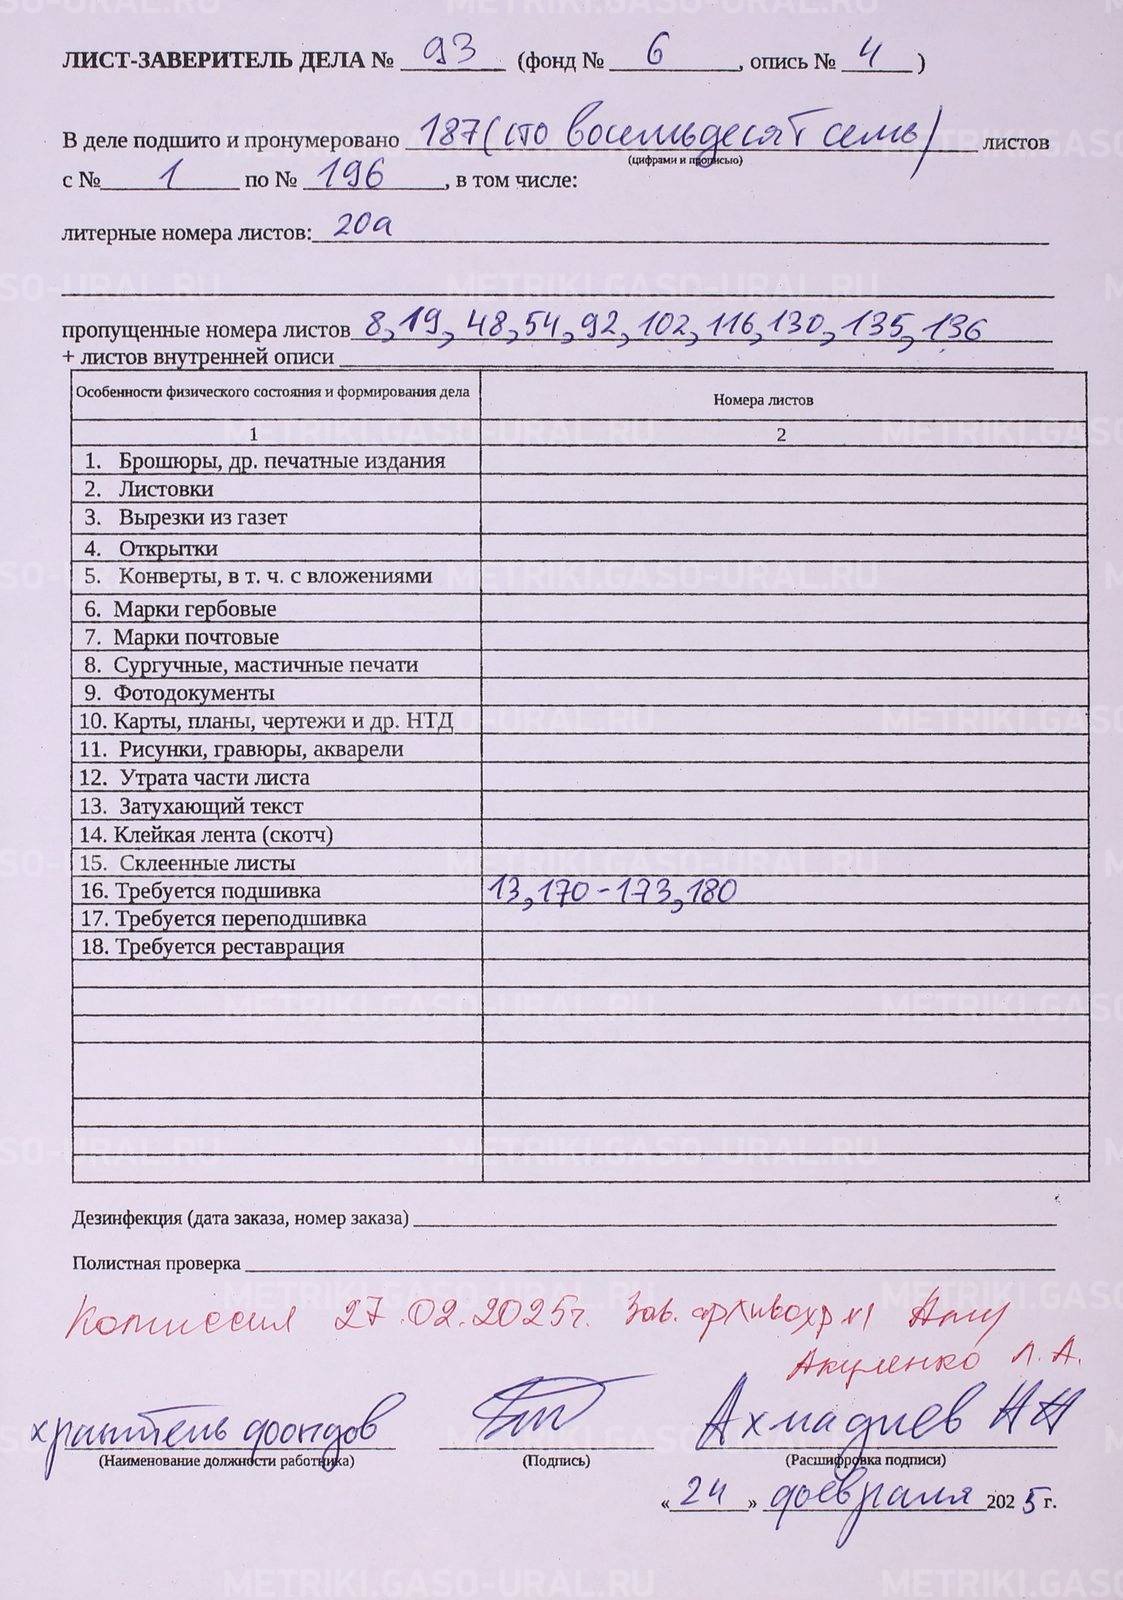 ЛИСТ-ЗАВЕРИТЕЛЬ ДЕЛА № 93 (фонд № 6, опись № 4)
В деле подшито и пронумеровано 187 (сто восемьдесят семь) листов
(цифрами и прописью)
с № 1 по № 196, в том числе:
литерные номера листов: 20а
пропущенные номера листов 8, 19, 48, 54, 92, 102, 116, 130, 135, 136
+ листов внутренней описи
Особенности физического состояния и формирования дела Номера листов
1 2
1. Брошюры, др. печатные издания
2. Листовки
3. Вырезки из газет
4. Открытки
5. Конверты, в т. ч. с вложениями
6. Марки гербовые
7. Марки почтовые
8. Сургучные, мастичные печати
9. Фотодокументы
10. Карты, планы, чертежи и др. НТД
11. Рисунки, гравюры, акварели
12. Утрата части листа
13. Затухающий текст
14. Клейкая лента (скотч)
15. Склеенные листы
16. Требуется подшивка 13, 170-173, 180
17. Требуется переподшивка
18. Требуется реставрация
Дезинфекция (дата заказа, номер заказа)
Полистная проверка
Комиссия 27.02.2025г. Зав. архивохр N1
Акуленко Л. А.
хранитель фондов Ахмадиев Н Н
(Наименование должности работника) (Подпись) (Расшифровка подписи)
« 24 » февраля 2025 г.
METRIKI.GASO-URAL.RU